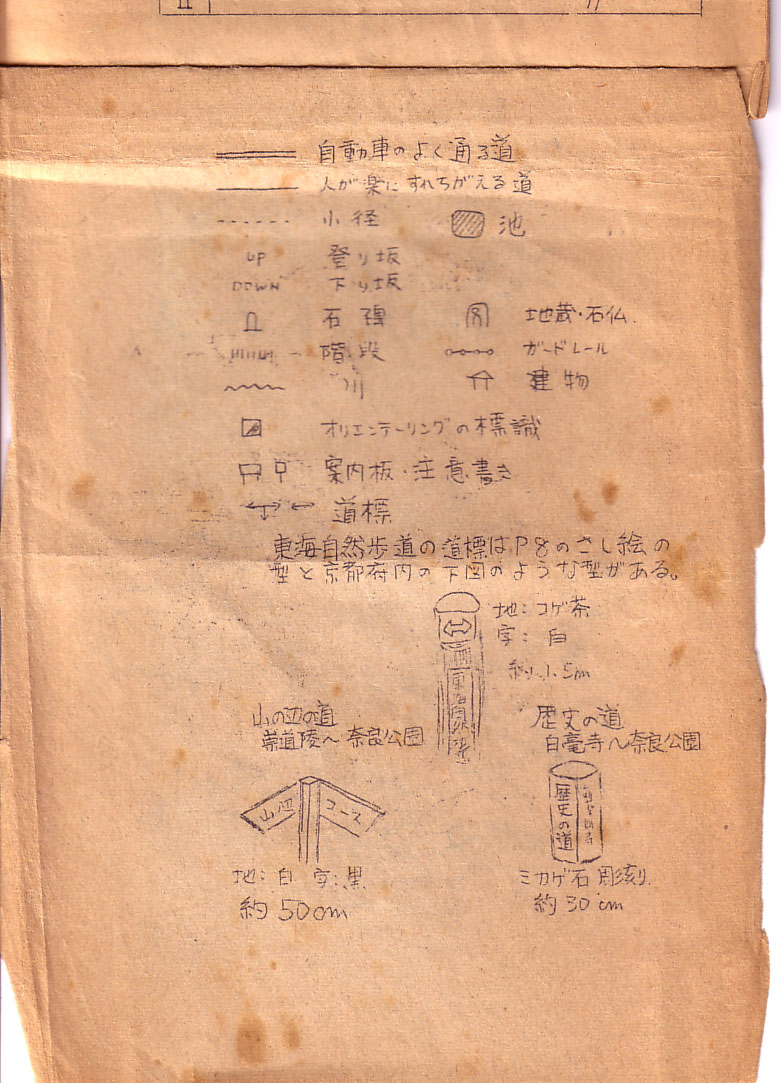 自動車のよく通る道
人が楽にすれちがえる道
小径 池
UP 登り坂
DOWN 下り坂
石碑 地蔵・石仏
階段 ガードレール
川 建物
オリエンテーリングの標識
案内板・注意書き
道標
東海自然歩道の道標はP8のさし絵の
型と京都府内の下図のような型がある。
地：コゲ茶
字：白
約1.5m
山の辺の道
崇道陵〜奈良公園
歴史の道
白毫寺〜奈良公園
コース
歴史の道
地：白 字：黒
約50cm
ミカゲ石彫刻り
約30cm